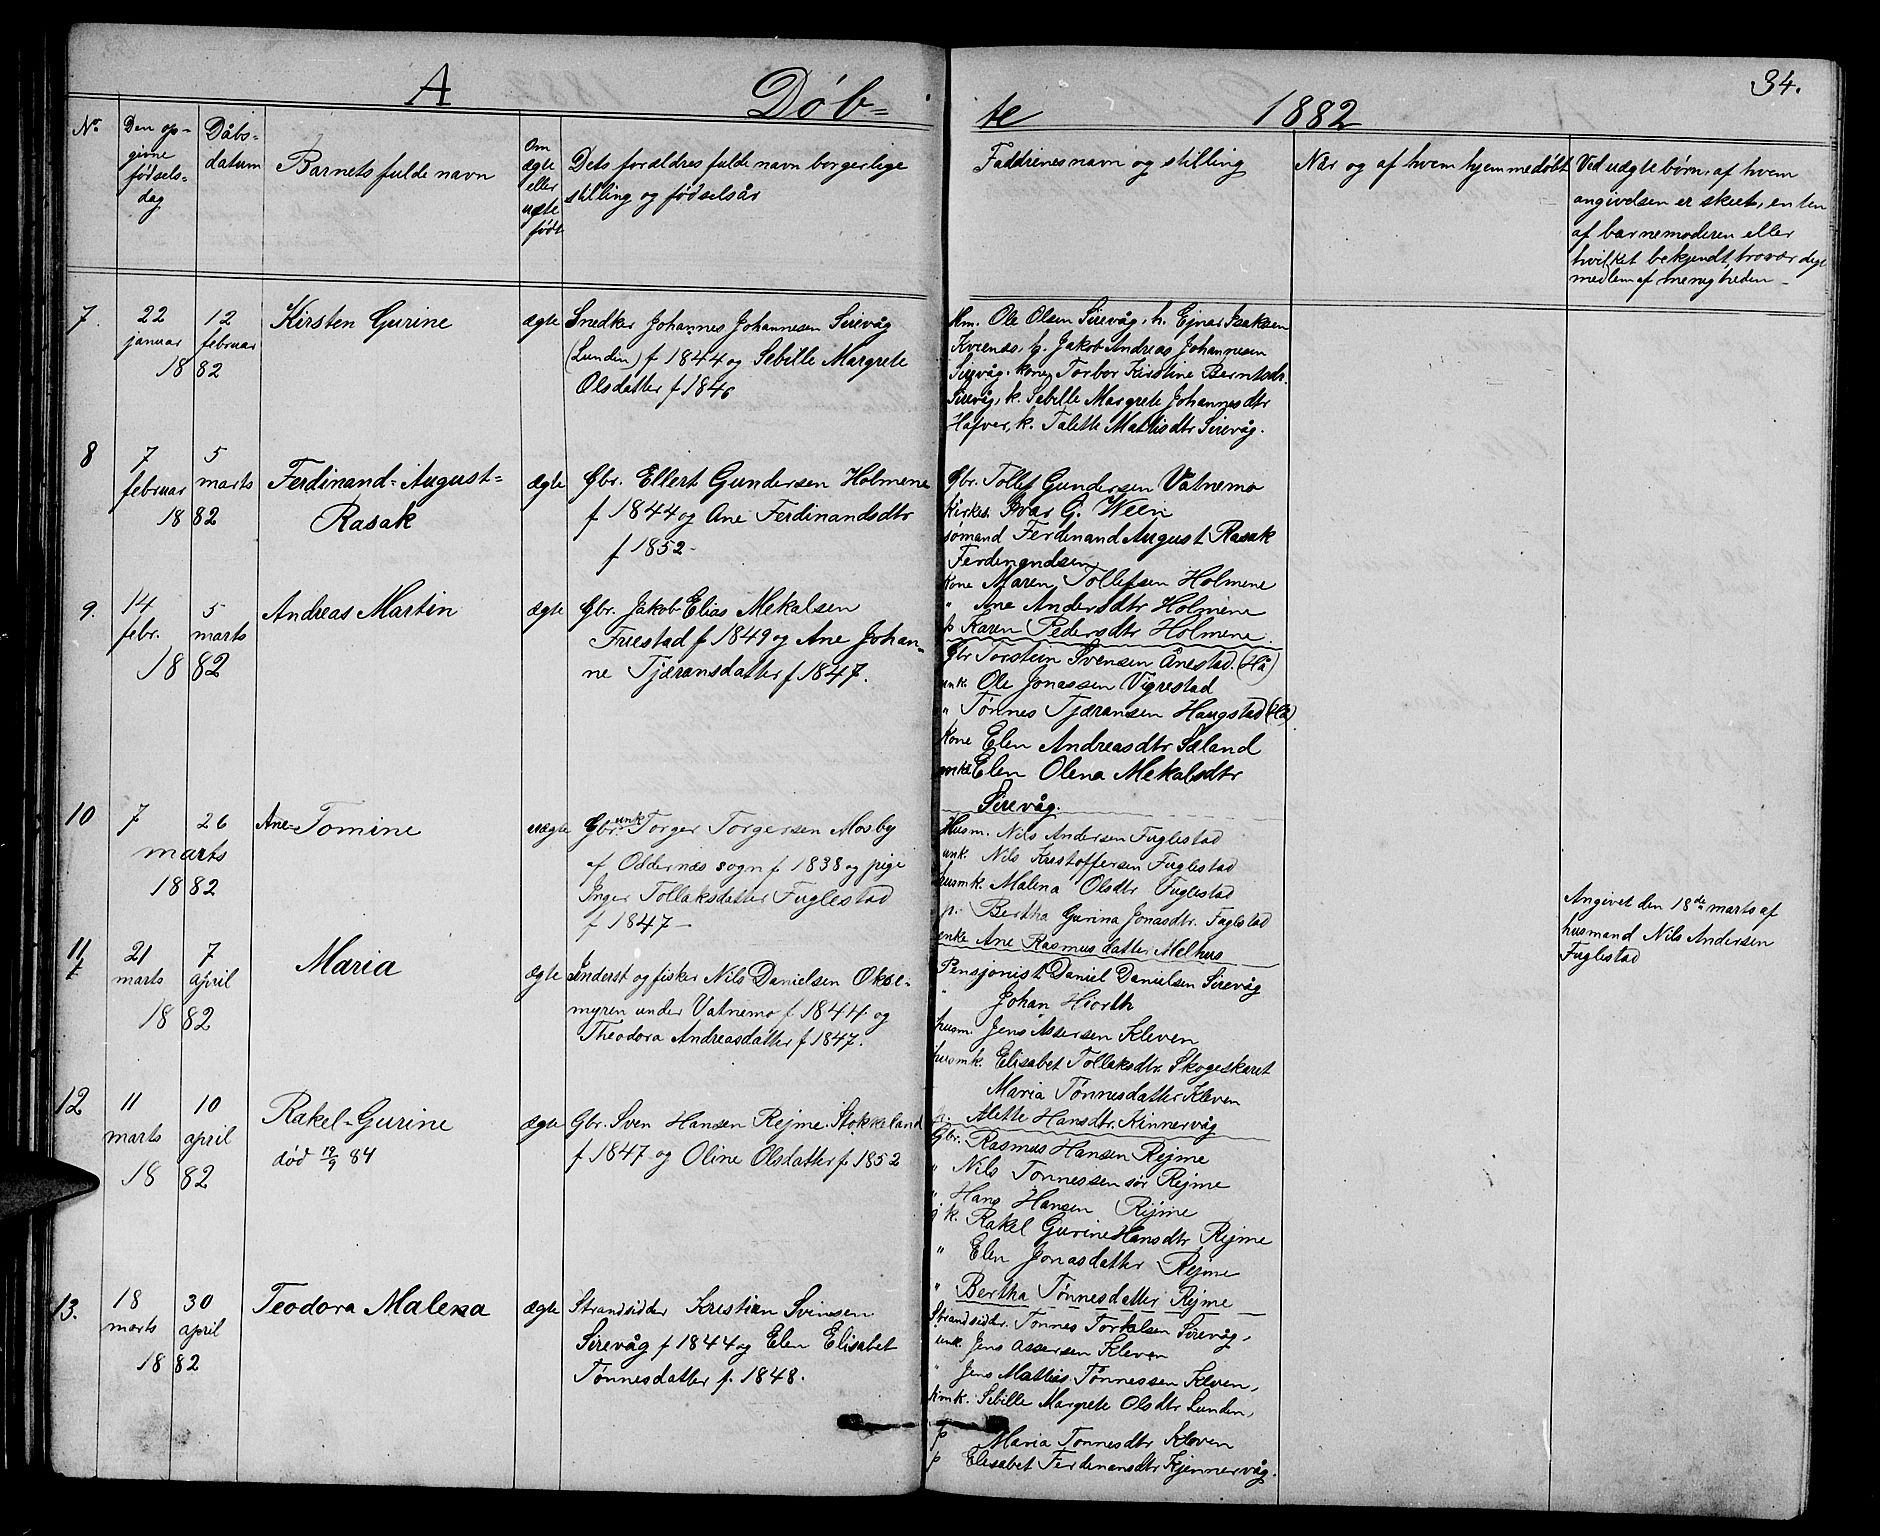 A
Døb-
te
1882
34.
No.
Den op-
givne
fødsels-
dag
Dåbs-
datum
Barnets fulde navn
Om
ægte
eller
uægte
født
Dets forældres fulde navn borgerlige
stilling og fødselsår
Faddrenes navn og stilling
Når og af hvem hjemmedøbt
Ved uægte børn, af hvem
angivelsen er skeet, enten
af barnemoderen eller
hvilket bekjendt, troværdigt
medlem af menigheden
7.
22
januar
12
februar
1882
Kirsten Gurine
ægte
Snedker Johannes Johannesen Sirevåg
(Lunden) f 1844 og Sebille Margrete
Olsdatter f 1846
Hm. Ole Olsen Sirevåg, h. Ejner Isaksen
Jakob Andreas Johannesen
Sirevåg. kone Torbor Kirstine Berntsdr.
Sirevåg, k. Sebille Margrete Johannesdtr
Hafver, k. Talette Mathisdtr Sirevåg.
8
7
februar
5
marts
1882
Ferdinand-August-
Rasak
ægte
Gbr. Ellert Gundersen Holmene
f 1844 og Ane Ferdinandsdtr
f 1852.
Gbr. Tollef Gundersen Vatnemo
Kirkes. Ivar G. Wein
sømand Ferdinand August Rasak
Ferdinandsen
kone Maren Tollefsen Holmene
" Ane Andersdtr Holmene
p Karen Pedersdtr Holmene.
9.
14
febr.
5
marts
1882
Andreas Martin
ægte
Gbr. Jakob Elias Mekalsen
Fuestad f 1849 og Ane Johan-
ne Tjæransdatter f 1847.
Gbr Torstein Svensen Ånestad. (Hå)
unk. Ole Jonassen Vigrestad
" Tønnes Tjæransen Haugstad (Hå)
kone Elen Andreasdtr Sæland
enke Elen Olena Mekalsdtr
Sirevåg.
10
7
26
marts
1882
Ane-Tomine
uægte
Gbr. unk Torger Torgersen Mosby
af Oddernes sogn f. 1838 og pige
Inger Tollaksdatter Fuglestad
f 1847
Husm. Nils Andersen Fuglestad
unk. Nils Kristoffersen Fuglestad
husmk. Malena Olsdtr Fuglestad
p. Bertha Gurina Jonasdtr. Fuglestad
enke Ane Rasmusdatter Melhus
Angivet den 18de marts af
husmand Nils Andersen
Fuglestad
11
21
marts
7
april
1882
Maria
ægte
Inderst og fisker Nils Danielsen Okse-
myren under Vatnemo f 1844 og
Theodora Andreasdatter f 1847.
Pensjonist Daniel Danielsen Sirevåg
" Johan Hiorth
husm. Jens Assersen Kleven
husmk. Elisabet Tollaksdtr. Skogeskaret
Maria Tønnesdatter Kleven
p. Alette Hansdtr. Kinnervåg
12
11
marts
10
april
1882
Rakel-Gurine
død 19/9 84
ægte
Gbr. Sven Hansen Rejme Stokkeland
f 1847 og Oline Olsdatter f. 1852
Gbr. Rasmus Hansen Rejme
" Nils Tønnessen sør Rejme
" Hans Hansen Rejme
g k. Rakel Gurine Hansdtr Rejme
" Elen Jonasdatter Rejme
" Bertha Tønnesdatter Rejme
13.
18
marts
30
april
1882
Teodora Malena
ægte
Strandsidder Kristian Svensen
Sirevåg f 1844 og Elen Elisabet
Tønnesdatter f. 1848.
Strandsidder. Tønnes Torkelsen Sirevåg,
unk. Jens Assersen Kleven
" Jens Mathis Tønnessen Kleven,
Sebille Margrete Olsdtr Lunden,
p Maria Tønnesdtr Kleven
p Elisabet Ferdinansdtr Kjennervåg.